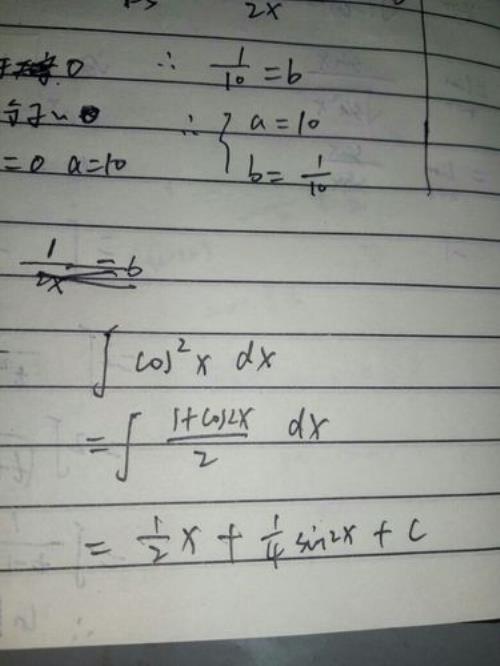 2x
0 ∴ 1/10 = b
∴ { a = 10
= 0 a = 10 b = 1/10
1/2x = b
∫ cos²x dx
= ∫ (1+cos2x)/2 dx
= 1/2 x + 1/4 sin2x + C